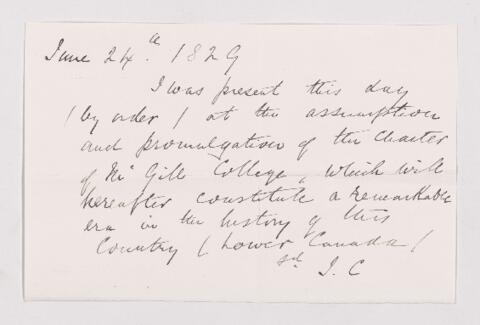 June 24.th 1829
I was present this day
(by order) at the assumption
and promulgation of the Charter
of Mc Gill College, which will
hereafter constitute a remarkable
era in the history of this
Country (Lower Canada)
sd J. C